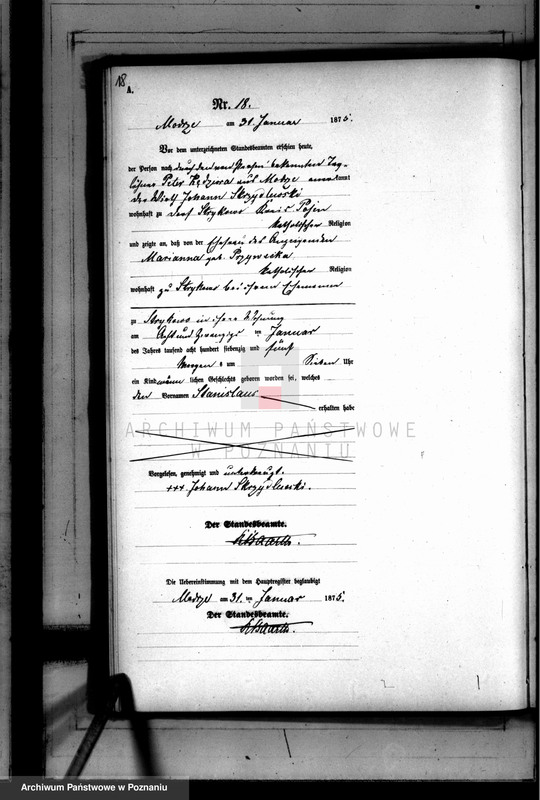 18
A.
Nr. 18.
Modrze am 31. Januar 1875.
Vor dem unterzeichneten Standesbeamten erschien heute,
der Person nach durch den von Person bekannten Tag-
löhner Peter aus Modrze anerkannt
der Wirth Johann Skrzydlewski
wohnhaft zu Dorf Strykowo Kreis Posen
katholischer Religion
und zeigte an, daß von der Ehefrau des Anzeigenden
Marianna geb.
katholischer Religion
wohnhaft zu Strykowo bei ihrem Ehemann
zu Strykowo in ihrer Wohnung
am Acht und zwanzigsten Januar
des Jahres tausend acht hundert siebenzig und fünf
Morgens um Sieben Uhr
ein Kind männlichen Geschlechts geboren worden sei, welches
den Vornamen Stanislaus
erhalten habe
ARCHIWUM PAŃSTWOWE
W POZNANIU
Vorgelesen, genehmigt und unterkreuzt.
+++ Johann Skrzydlewski.
Der Standesbeamte.
Die Uebereinstimmung mit dem Hauptregister beglaubigt
Modrze am 31. ten Januar 1875.
Der Standesbeamte.
Archiwum Państwowe w Poznaniu